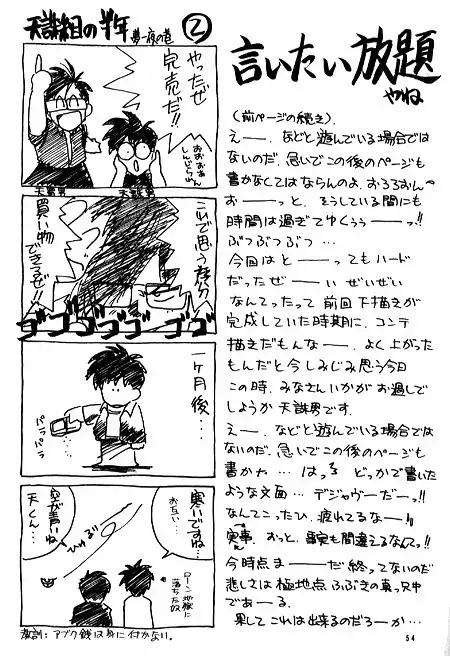 天誅組の半年
夢一夜の巻
②
やったぜ
完売だ!!
おおおお
しんじられん
天誅男
これで思う存分
買い物
できるぜ!!
ゴゴゴゴゴゴゴ
一ヶ月後・・・
パラパラ
寒いですね…
お互い…
空が青いね
天くん…
ひゅるる
ローン地獄に
落ちた奴
教訓:アブク銭は身に付かない。
言いたい放題
やね
(前ページの続き).
えー──. などと遊んでいる場合では
ないのだ. 急いでこの後のページも
書かなくてはならんのよ. おろろおん
おー──っと、 そうしている間にも
時間は過ぎてゆくぅぅ──っ!!
ぶつぶつぶつ …
今回はと──ってもハード
だったぜ──ぃ ぜいぜい
なんてったって 前回下描きが
完成していた時期に. コンテ
描きだもんな──. よく上がった
もんだと今しみじみ思う今日
この時. みなさんいかがお過しで
しょうか 天誅男です.
えー──. などと遊んでいる場合では
ないのだ. 急いでこの後のページも
書かね … はっ!? どっかで書いた
ような文面 … デジャヴーだーっ!!
なんてこったひ. 疲れてるな──!!
実事. おっと、事実も間違えるなんてっ!!
今時点ま──だ終ってないのだ
悲しさは極地点ふぶきの真っ只中
であ──る.
果してこれは出来るのだろ──か…
54